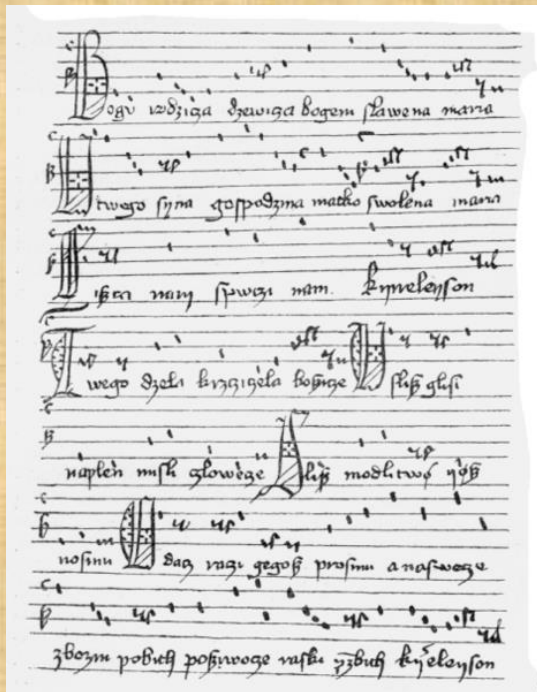 Bogu rodzicza dzewicza bogem slawena maria
U twego syna gospodzina matko swolena maria
nam spwczi nam. Kyrieleyson
Twego dzela krzcziczela bozicze Uslisz glosi
naplen misli czlowecze Slisz modlitwo yosz
nosimi dacz raczi gegosz prosimi a naswecze
zbozni pobith posziwocze raski przebith kyrieleyson